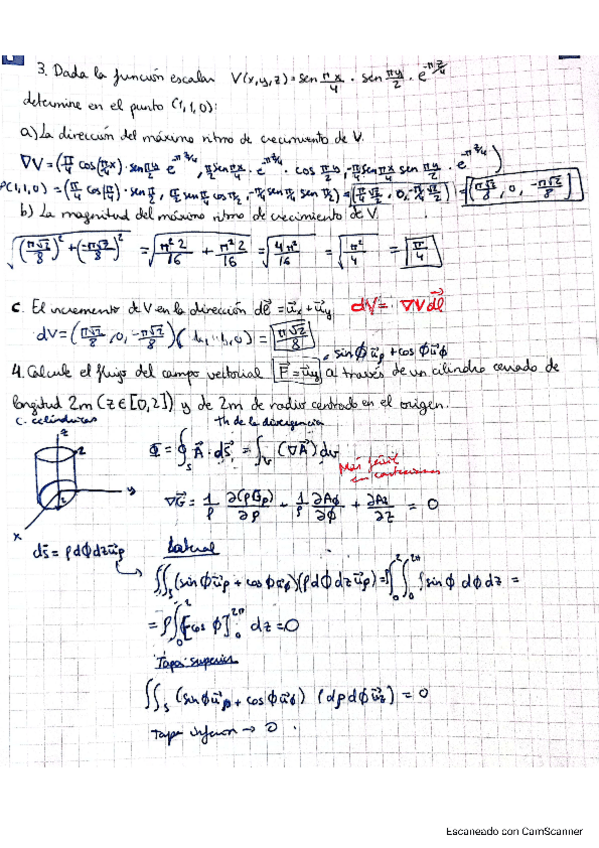 3. Dada la función escalar V(x,y,z) = sen πx/4 · sen πy/2 · e^(-πz/4)
determine en el punto (1,1,0):
a) La dirección del máximo ritmo de crecimiento de V.
∇V = (π/4 cos(π/4 x) · sen π/2 y e^(-πz/4), π/2 sen π/4 x · e^(-πz/4) · cos π/2 y, -π/4 sen π/4 x sen πy/2 · e^(-πz/4))
P(1,1,0) = (π/4 cos(π/4) · sen π/2, π/2 sen π/4 cos π/2, -π/4 sen π/4 sen π/2) = (π/4 √2/2, 0, -π/4 √2/2) = (π√2/8, 0, -π√2/8)
b) La magnitud del máximo ritmo de crecimiento de V.
√((π√2/8)² + (-π√2/8)²) = √(π² 2/16 + π² 2/16) = √(4π²/16) = √(π²/4) = π/4
c. El incremento de V en la dirección dl = u_x + u_y dV = ∇V dl
dV = (π√2/8, 0, -π√2/8)( 1, 1, 0) = π√2/8
sin ϕ u_ρ + cos ϕ u_ϕ
4. Calcule el flujo del campo vectorial F = u_y a través de un cilindro cerrado de
longitud 2m (z ∈ [0,2]) y de 2m de radio centrado en el origen.
c. cilíndricas
Th de la divergencia
z
2
y
x
Φ = ∮_S A · ds = ∫_V (∇A) dv
Más fácil
∇G = 1/ρ ∂(ρG_ρ)/∂ρ - 1/ρ ∂A_ϕ/∂ϕ + ∂A_z/∂z = 0
ds = ρ dϕ dz u_ρ
Lateral
∬_S (sin ϕ u_ρ + cos ϕ u_ϕ)(ρ dϕ dz u_ρ) = ∫_0^2 ∫_0^2π ρ sin ϕ dϕ dz =
= ρ ∫_0^2 [-cos ϕ]_0^2π dz = 0
Tapa superior
∬_S (sin ϕ u_ρ + cos ϕ u_ϕ) (ρ dρ dϕ u_z) = 0
Tapa inferior → 0
Escaneado con CamScanner